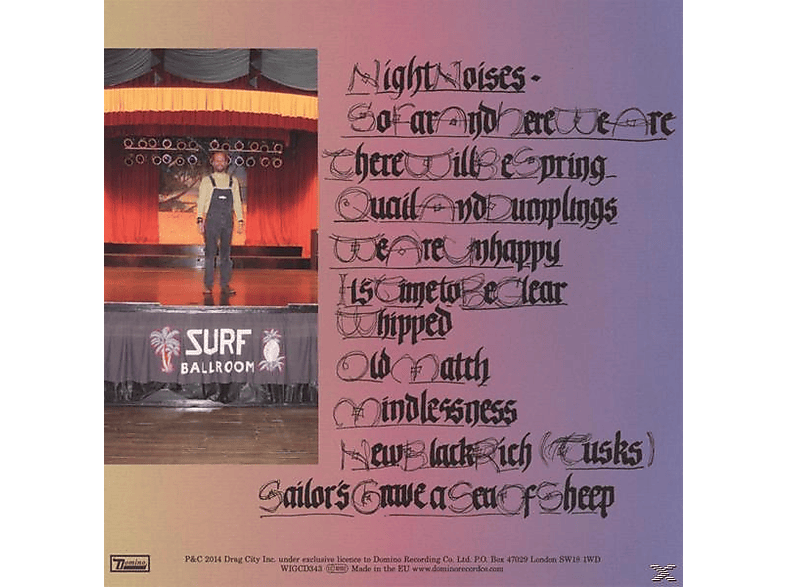 Night Noises -
So Far And Here We Are
There Will Be Spring
Quail And Dumplings
We Are Unhappy
It's Time to Be Clear
Whipped
Old Match
Mindlessness
New Black Rich (Tusks)
Sailor's Grave a Sea Of Sheep
SURF
BALLROOM
Domino
P&C 2014 Drag City Inc. under exclusive licence to Domino Recording Co. Ltd. P.O. Box 47029 London SW18 1WD
WIGCD343 Made in the EU www.dominorecordco.com